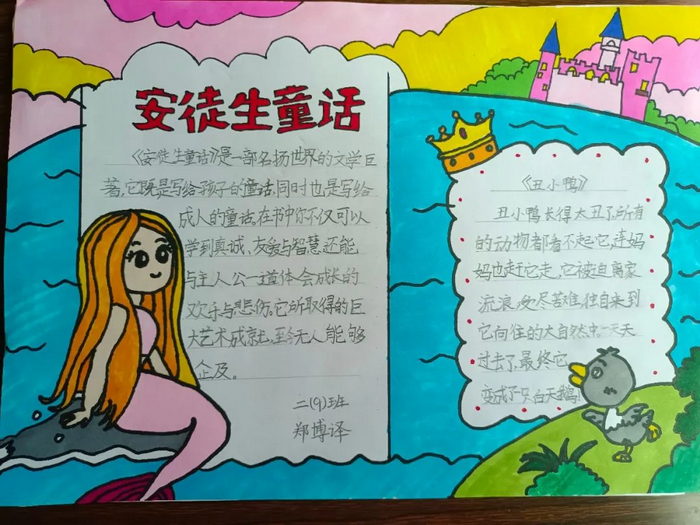 安徒生童话
《安徒生童话》是一部名扬世界的文学巨
著,它既是写给孩子的童话,同时也是写给
成人的童话。在书中你不仅可以
学到真诚、友爱与智慧,还能
与主人公一道体会成长的
欢乐与悲伤。它所取得的巨
大艺术成就,至今无人能够
企及。
二(9)班
郑博译
《丑小鸭》
丑小鸭长得太丑了,所有
的动物都看不起它,连妈
妈也赶它走,它被迫离家
流浪,受尽苦难,独自来到
它向往的大自然中,一天天
过去了,最终它
变成了只白天鹅!